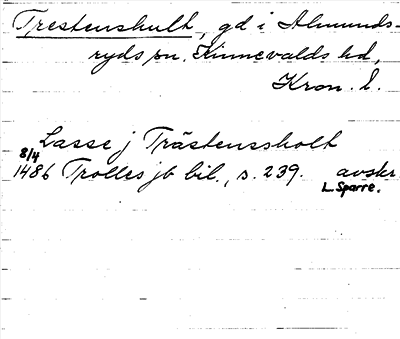 Trestenshult, gd i Almunds-
ryds sn. Kinnevalds hd,
Kron. l.
Lasse j Trästenssholt
8/4
1486 Trolles jb bil., s. 239. avskr
L. Sparre.